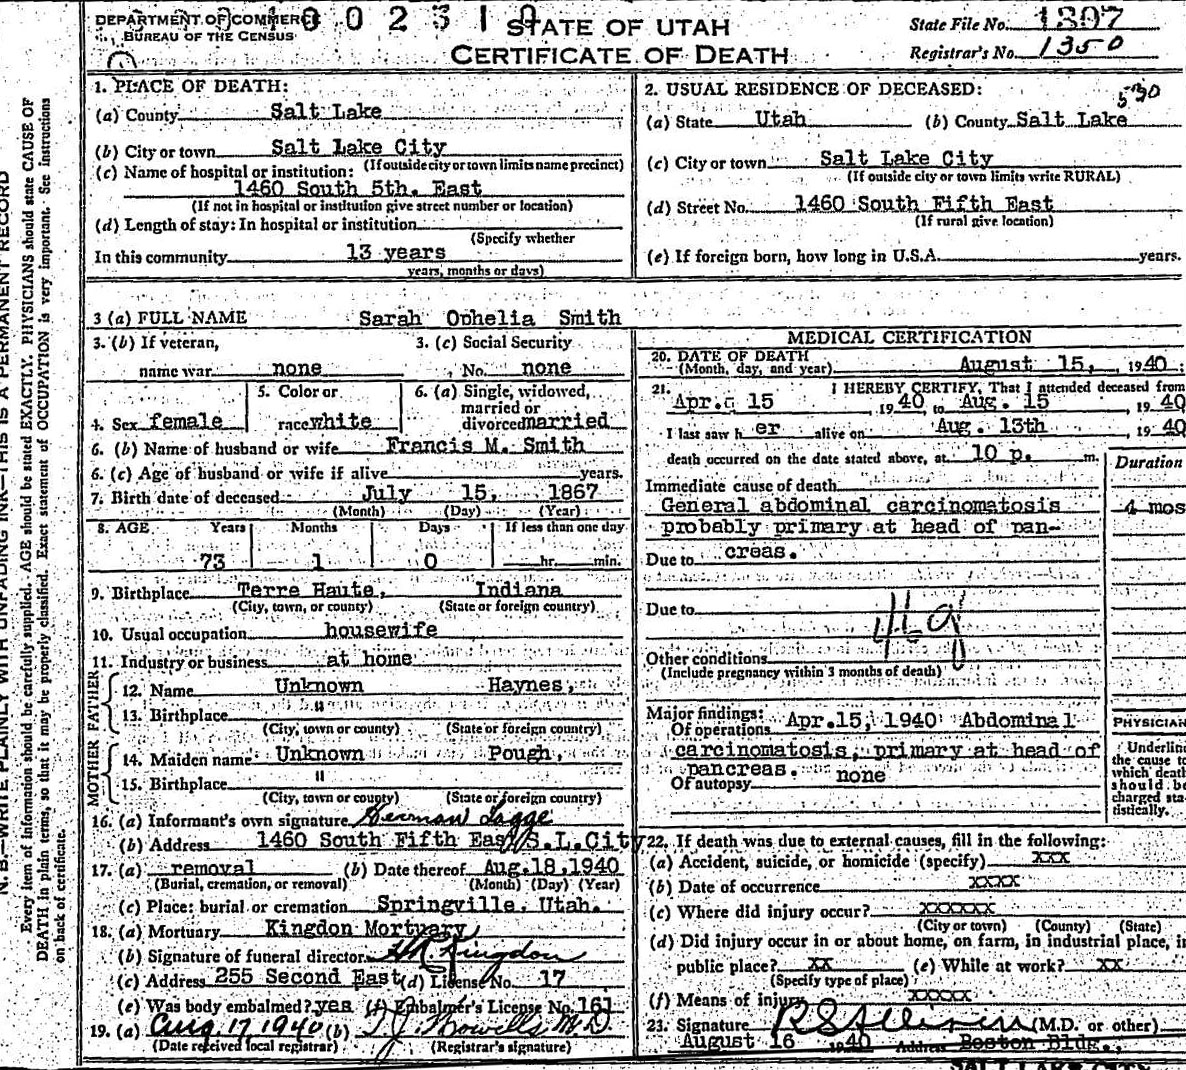 DEPARTMENT OF COMMERCE
BUREAU OF THE CENSUS
STATE OF UTAH
CERTIFICATE OF DEATH
State File No. 1397
Registrar's No. 1350
1. PLACE OF DEATH:
(a) County Salt Lake
(b) City or town Salt Lake City
(If outside city or town limits name precinct)
(c) Name of hospital or institution:
1460 South 5th. East
(If not in hospital or institution give street number or location)
(d) Length of stay: In hospital or institution
(Specify whether
In this community 13 years
years, months or days)
2. USUAL RESIDENCE OF DECEASED:
530
(a) State Utah (b) County Salt Lake
(c) City or town Salt Lake City
(If outside city or town limits write RURAL)
(d) Street No. 1460 South Fifth East
(If rural give location)
(e) If foreign born, how long in U.S.A. years.
3 (a) FULL NAME Sarah Ophelia Smith
3. (b) If veteran, 3. (c) Social Security
name war none No. none
5. Color or 6. (a) Single, widowed,
married or
4. Sex female race white divorced married
6. (b) Name of husband or wife Francis M. Smith
6. (c) Age of husband or wife if alive years.
7. Birth date of deceased July 15, 1867
(Month) (Day) (Year)
8. AGE Years Months Days If less than one day
73 1 0 hr. min.
9. Birthplace Terre Haute, Indiana
(City, town, or county) (State or foreign country)
10. Usual occupation housewife
11. Industry or business at home
FATHER
12. Name Unknown Haynes,
13. Birthplace "
(City, town, or county) (State or foreign country)
MOTHER
14. Maiden name Unknown Pough,
15. Birthplace "
(City, town or county) (State or foreign country)
16. (a) Informant's own signature Herman Lagge
(b) Address 1460 South Fifth East S.L.City
17. (a) removal (b) Date thereof Aug.18,1940
(Burial, cremation, or removal) (Month) (Day) (Year)
(c) Place: burial or cremation Springville, Utah.
18. (a) Mortuary Kingdon Mortuary
(b) Signature of funeral director Kingdon
(c) Address 255 Second East (d) License No. 17
(e) Was body embalmed? yes (f) Embalmer's License No. 161
19. (a) Aug 17 1940 (b) T. J. Howells M.D.
(Date received local registrar) (Registrar's signature)
MEDICAL CERTIFICATION
20. DATE OF DEATH
(Month, day, and year) August 15, 1940
21. I HEREBY CERTIFY, That I attended deceased from
Apr. 15 1940 to Aug. 15 1940
I last saw h er alive on Aug. 13th 1940
death occurred on the date stated above, at 10 p. m.
Duration
Immediate cause of death
General abdominal carcinomatosis 4 mos
probably primary at head of pan-
Due to creas.
Due to
46g
Other conditions
(Include pregnancy within 3 months of death)
Major findings:
Of operations Apr.15, 1940 Abdominal
carcinomatosis, primary at head of
pancreas.
Of autopsy none
PHYSICIAN
Underline
the cause to
which death
should be
charged sta-
tistically.
22. If death was due to external causes, fill in the following:
(a) Accident, suicide, or homicide (specify) xxx
(b) Date of occurrence xxxx
(c) Where did injury occur? xxxxxx
(City or town) (County) (State)
(d) Did injury occur in or about home, on farm, in industrial place, in
public place? xx (e) While at work? xx
(Specify type of place)
(f) Means of injury xxxxx
23. Signature R S Allison (M.D. or other)
August 16 1940 Address Boston Bldg.,
SALT LAKE CITY
N. B.—WRITE PLAINLY WITH UNFADING INK—THIS IS A PERMANENT RECORD
Every item of information should be carefully supplied. AGE should be stated EXACTLY. PHYSICIANS should state CAUSE OF
DEATH in plain terms, so that it may be properly classified. Exact statement of OCCUPATION is very important. See instructions
on back of certificate.